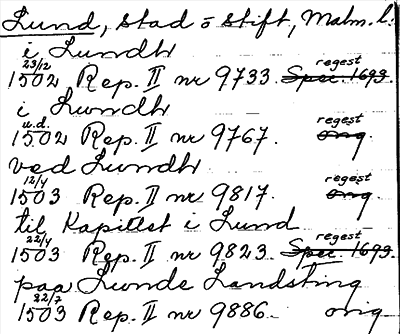 Lund, Stad o Stift, Malm. l:
i Lundh
23/12 1502 Rep. II nr 9733. regest Spec. 1693.
i Lundh
u.d. 1502 Rep. II nr 9767. regest orig.
ved Lundh
12/4 1503 Rep. II nr 9817. regest orig.
til Kapitlet i Lund
22/4 1503 Rep. II nr 9823 regest Spec. 1693.
paa Lunde Landsting
22/7 1503 Rep. II nr 9886. orig.